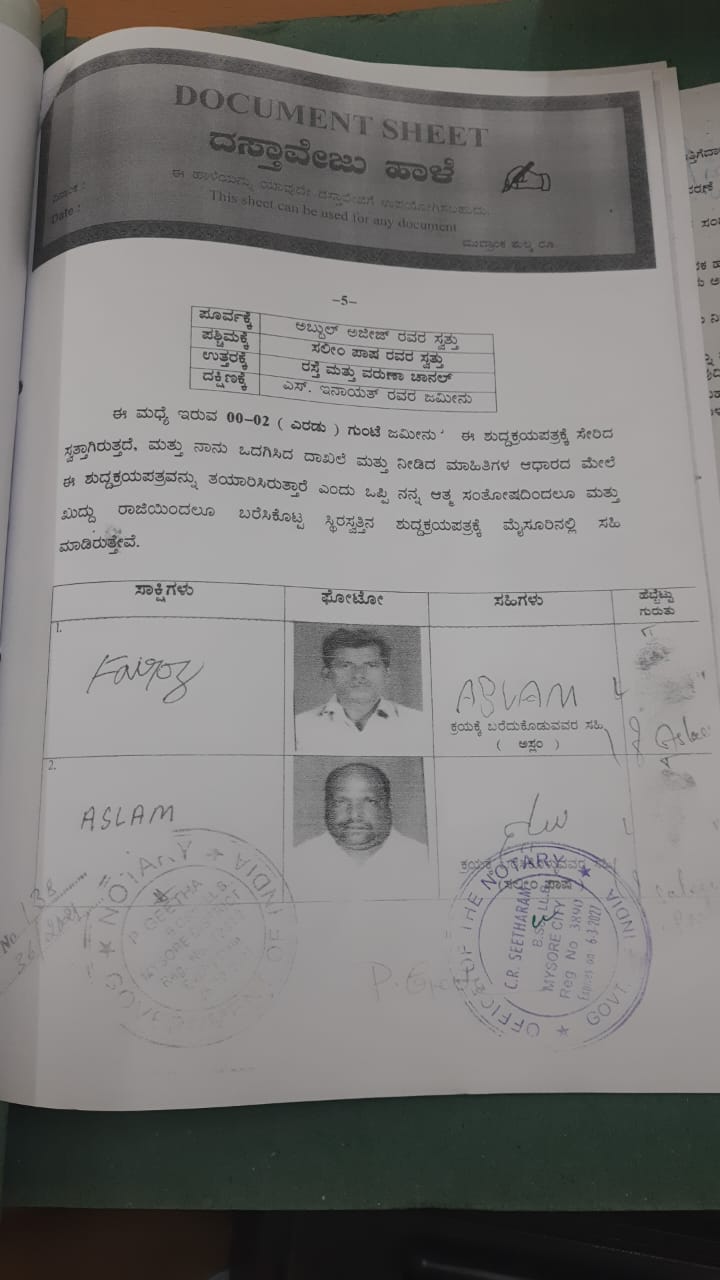 DOCUMENT SHEET
ದಸ್ತಾವೇಜು ಹಾಳೆ
ಈ ಹಾಳೆಯನ್ನು ಯಾವುದೇ ದಸ್ತಾವೇಜಿಗೆ ಉಪಯೋಗಿಸಬಹುದು
ದಿನಾಂಕ :
Date :
This sheet can be used for any document
ಮುದ್ರಾಂಕ ಶುಲ್ಕ ರೂ
–5–
ಪೂರ್ವಕ್ಕೆ ಅಬ್ದುಲ್ ಅಜೀಜ್ ರವರ ಸ್ವತ್ತು
ಪಶ್ಚಿಮಕ್ಕೆ ಸಲೀಂ ಪಾಷ ರವರ ಸ್ವತ್ತು
ಉತ್ತರಕ್ಕೆ ರಸ್ತೆ ಮತ್ತು ವರುಣಾ ಚಾನಲ್
ದಕ್ಷಿಣಕ್ಕೆ ಎಸ್. ಇನಾಯತ್ ರವರ ಜಮೀನು
ಈ ಮಧ್ಯೆ ಇರುವ 00–02 ( ಎರಡು ) ಗುಂಟೆ ಜಮೀನು ಈ ಶುದ್ದಕ್ರಯಪತ್ರಕ್ಕೆ ಸೇರಿದ
ಸ್ವತ್ತಾಗಿರುತ್ತದೆ, ಮತ್ತು ನಾನು ಒದಗಿಸಿದ ದಾಖಲೆ ಮತ್ತು ನೀಡಿದ ಮಾಹಿತಿಗಳ ಆಧಾರದ ಮೇಲೆ
ಈ ಶುದ್ದಕ್ರಯಪತ್ರವನ್ನು ತಯಾರಿಸಿರುತ್ತಾರೆ ಎಂದು ಒಪ್ಪಿ ನನ್ನ ಆತ್ಮ ಸಂತೋಷದಿಂದಲೂ ಮತ್ತು
ಖುದ್ದು ರಾಜಿಯಿಂದಲೂ ಬರೆಸಿಕೊಟ್ಟ ಸ್ಥಿರಸ್ವತ್ತಿನ ಶುದ್ದಕ್ರಯಪತ್ರಕ್ಕೆ ಮೈಸೂರಿನಲ್ಲಿ ಸಹಿ
ಮಾಡಿರುತ್ತೇವೆ.
ಸಾಕ್ಷಿಗಳು ಫೋಟೋ ಸಹಿಗಳು ಹೆಬ್ಬೆಟ್ಟು
ಗುರುತು
1.
Fairoz
ASLAM
ಕ್ರಯಕ್ಕೆ ಬರೆದುಕೊಡುವವರ ಸಹಿ
( ಅಸ್ಲಂ )
2.
ASLAM
(ಸಲೀಂ ಪಾಷ
P. GEETHA
NOTARY
INDIA
OFFICE OF THE NOTARY
C.R. SEETHARAM
B.Sc., LL.B.
MYSORE CITY
Reg No 3840
Expires on 6.3.2021
GOVT. INDIA